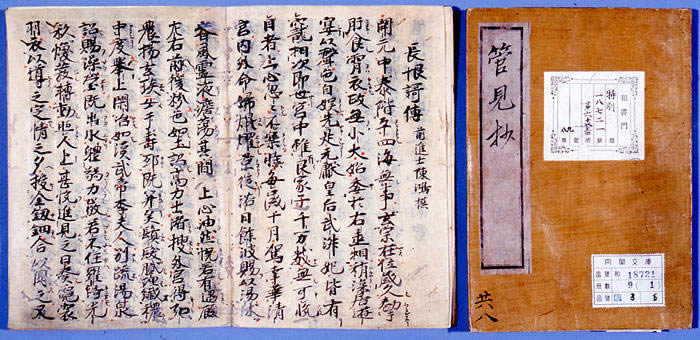 長恨謌傳 前進士陳鴻撰
開元中泰階平四海無事玄宗在位歲久勌于
旰食宵衣政無小大始委於右丞相稍深居遊
宴以聲色自娯先是元獻皇后武淑妃皆有
寵相次即世宮中雖良家子千万數無可悦
目者上心忽々不樂時每歲十月駕幸華清
宮内外命婦熠燿景從浴日餘波賜以湯沐
春風靈液澹蕩其間上心油然怳若有遇顧
左右前後粉色如土詔高力士潛搜外宮得弘
農楊玄琰女于壽邸既笄矣鬢髮膩理纖穠
中度擧止閑冶如漢武帝李夫人別疏湯泉
詔賜澡瑩既出水體弱力微若不任羅綺光
彩煥發轉動照人上甚悦進見之日奏霓裳
羽衣以導之定情之夕授金釵鈿合以固之又
管見抄
和書門
特別
一八七二一
共八
内閣文庫
番號 和 18721
冊數 9 (1)